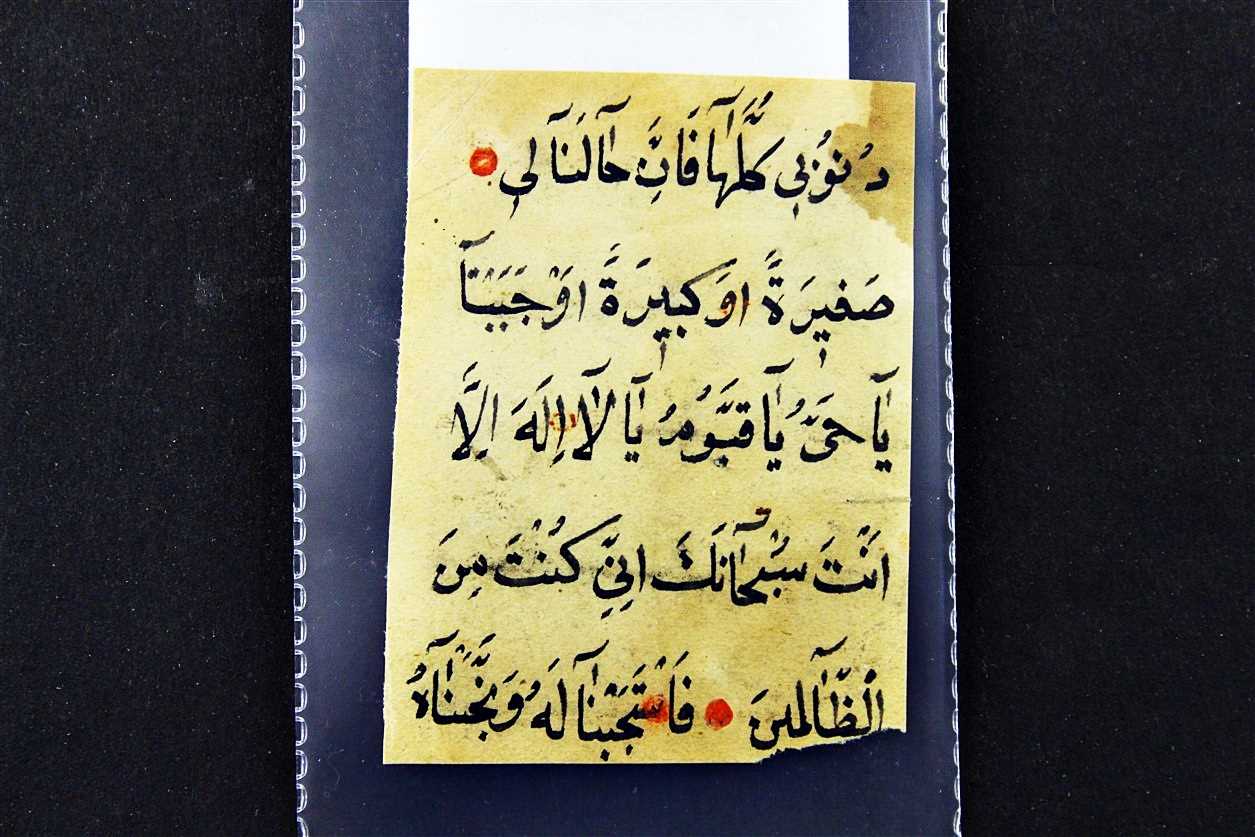 ذُنُوبِي كُلَّهَا فَاِنَّ حَالَنَا لِي
صَغِيرَةً اَوْ كَبِيرَةً اَوْ
يَا حَيُّ يَا قَيُّومُ يَا لَا اِلَهَ اِلَّا
اَنْتَ سُبْحَانَكَ اِنِّي كُنْتُ مِنَ
الظَّالِمِينَ فَاسْتَجَبْنَا لَهُ وَنَجَّيْنَاهُ